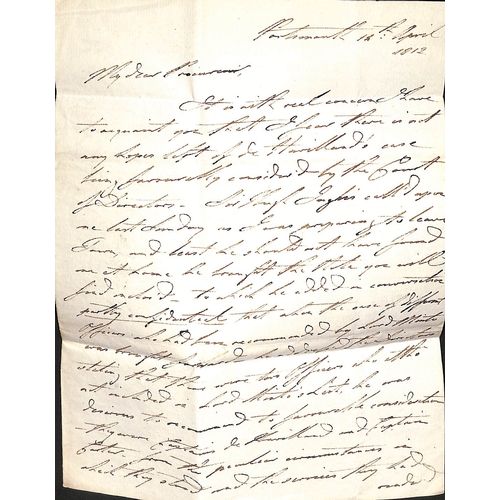 Portsmouth 14th April
1812
My dear Procureur,
It is with real concern I have
to acquaint you that I fear there is not
any hopes left of de Havilland's case
being favourably considered by the Court
of Directors. Sir Hugh Inglis call'd upon
me last Sunday as I was preparing to leave
Town, and least he should not have found
me at home he brought the Note you will
find inclosed - to which he added in conversation
partly confidential that when the case of different
Officers who had been recommended by Lord Minto
was brought forward he had
stating that there were two Officers who altho
not included in Lord Minto's list, he was
desirous to recommend to favourable consideration
they were Captain de Havilland and Captain
from the peculiar circumstances in
which they stood and the services they had